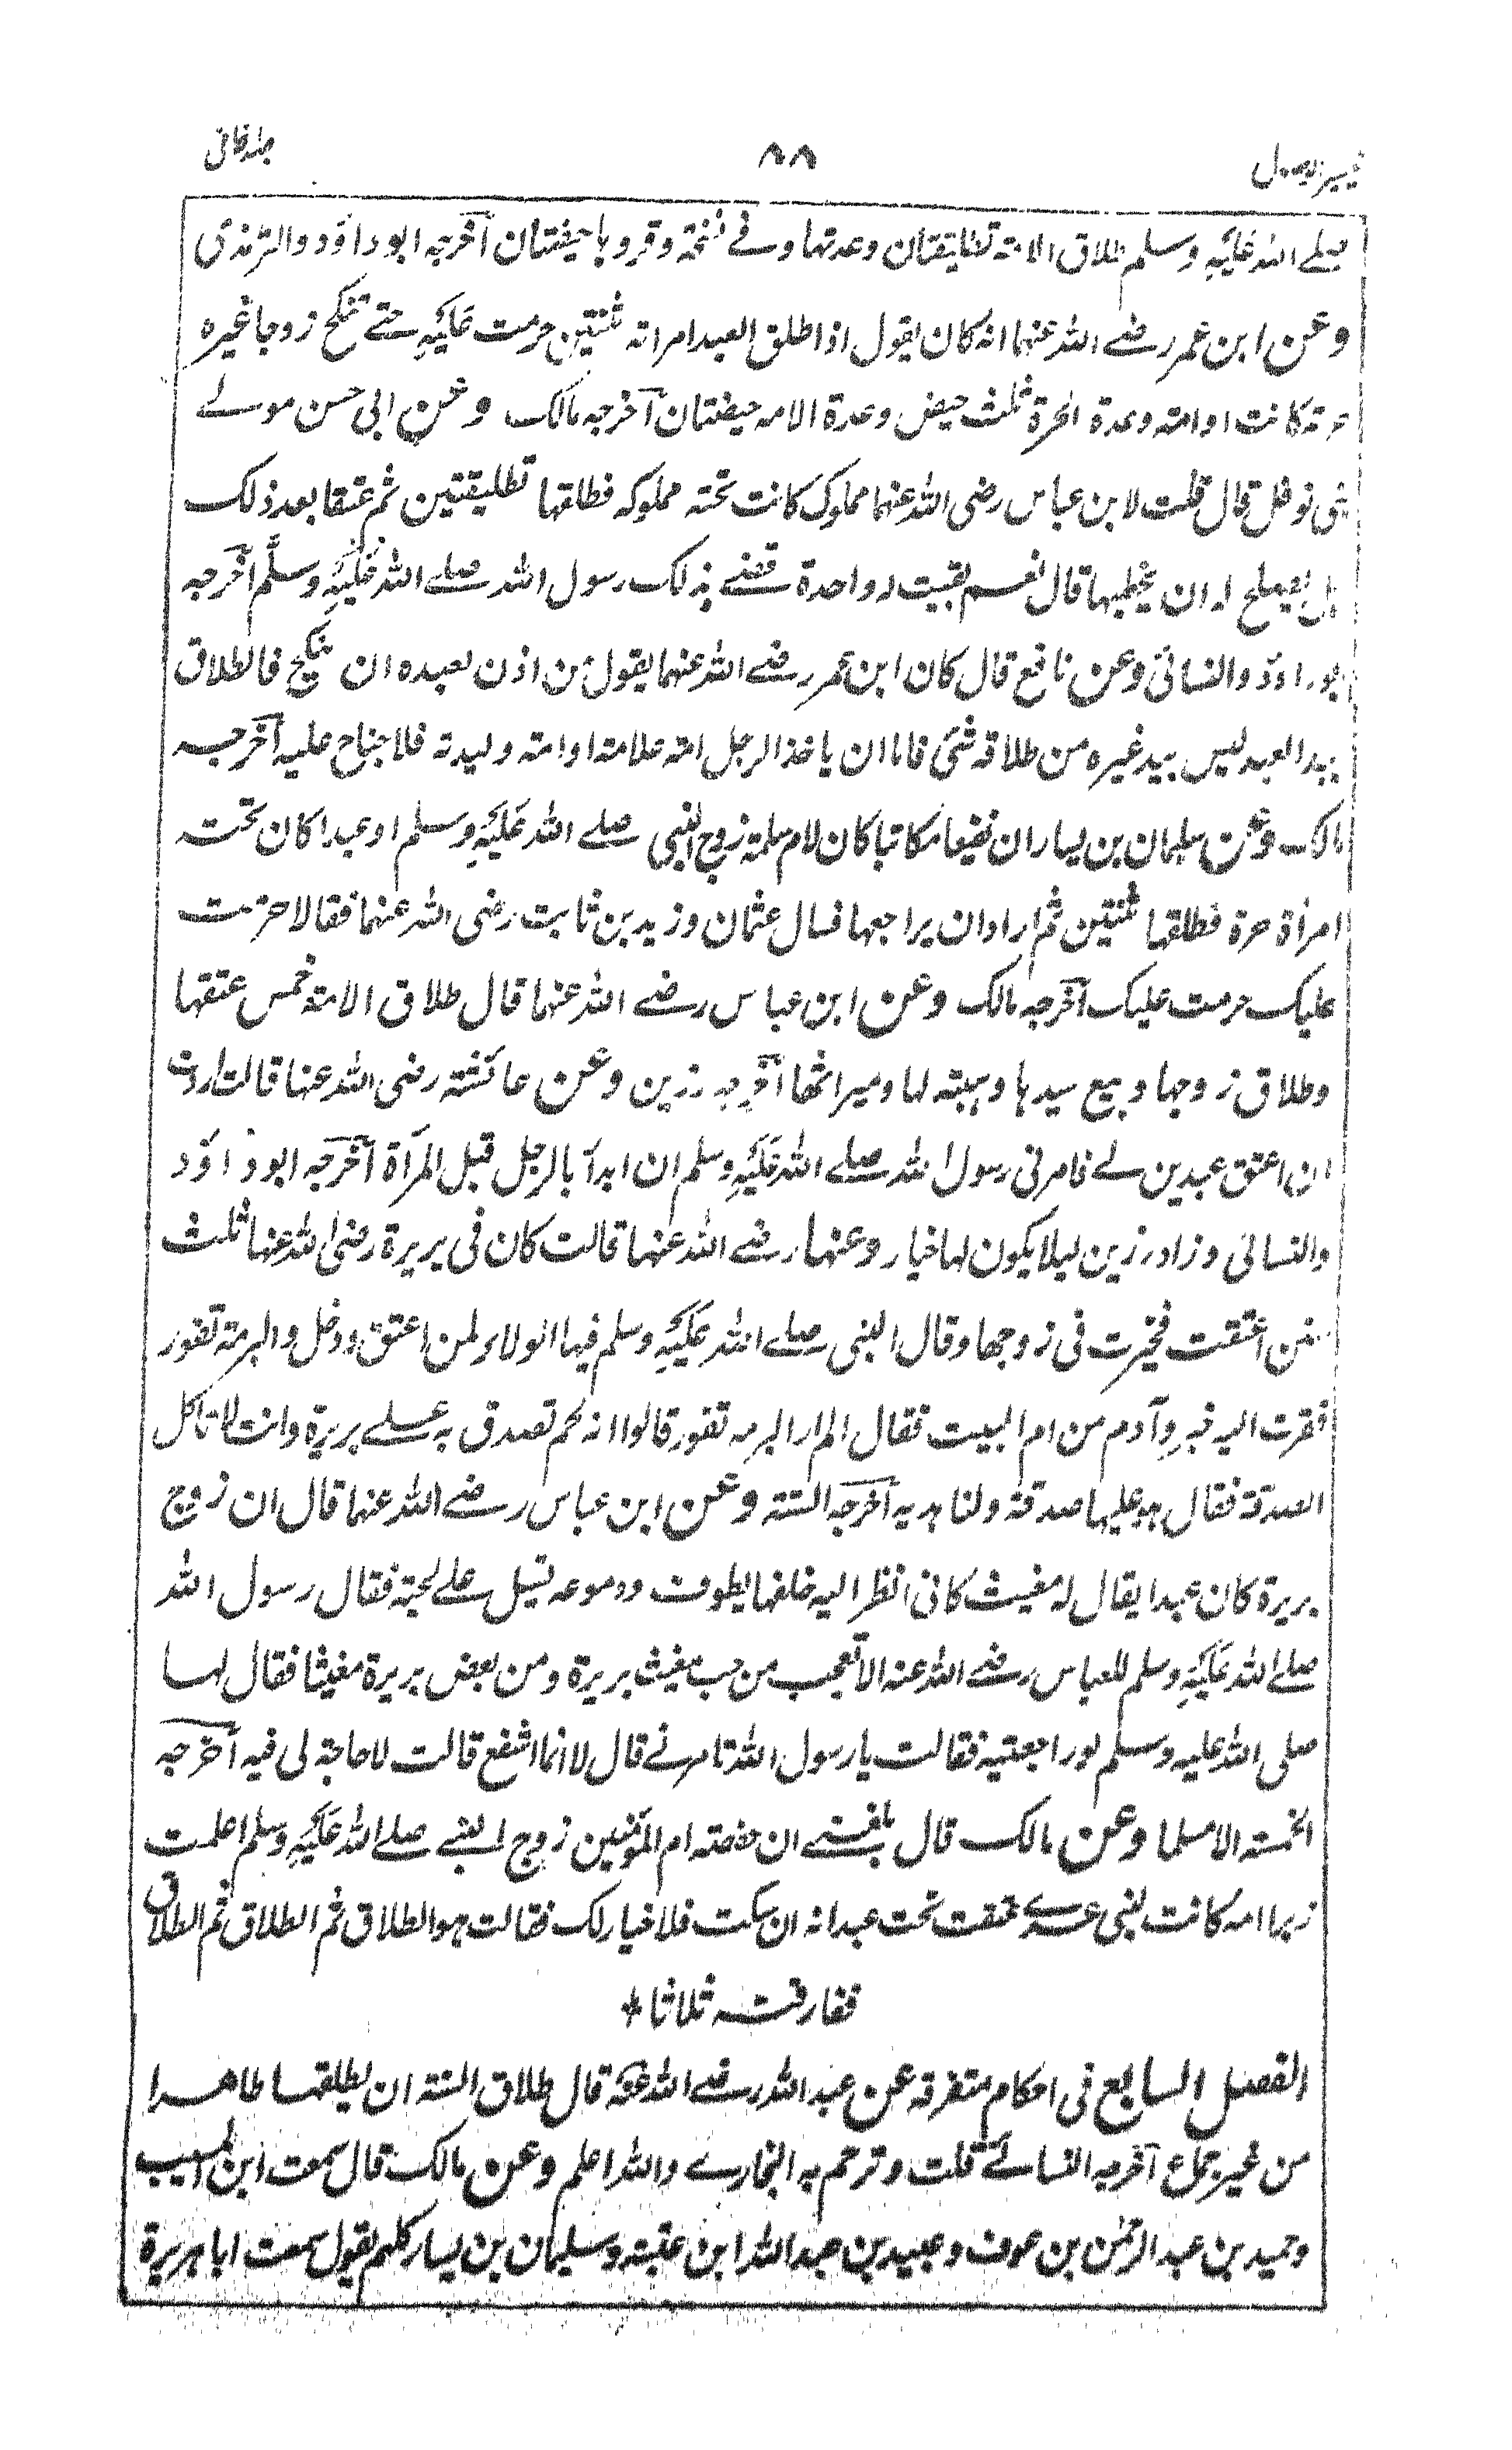 تيسير الاصول
٨٨
جلد ثانی
صلے اللہ عليہ وسلم طلاق الامۃ تطليقتان وعدتها وفے نسخۃ وقروہا حيضتان آخرجہ ابو داؤد والترمذی
وعن ابن عمر رضے اللہ عنهما انہ كان يقول اذا طلق العبد امراتہ ثنتين حرمت عليہ حتے تنكح زوجا غيرہ
حرۃ كانت او امتہ وعدۃ الحرۃ ثلث حيض وعدۃ الامہ حيضتان آخرجہ مالك وعن ابی حسن مولے
بنی نوفل قال قلت لابن عباس رضی اللہ عنهما مملوك كانت تحتہ مملوكہ فطلقها تطليقتين ثم عتقا بعد ذلك
ہل يصلح لہ ان يخطبها قال نعم بقيت لہ واحدۃ قضے بذلك رسول اللہ صلے اللہ عليہ وسلم آخرجہ
ابو داؤد والنسائی وعن نافع قال كان ابن عمر رضے اللہ عنهما يقول من اذن لعبدہ ان ينكح فالطلاق
بيد العبد ليس بيد غيرہ من طلاقہ شئ فاما ان ياخذ الرجل امۃ غلامتہ او امۃ وليدتہ فلا جناح عليہ آخرجہ
مالك وعن سليمان بن يسار ان نفيعا مكاتبا كان لام سلمۃ زوج النبی صلے اللہ عليہ وسلم او عبدا كان تحتہ
امرأۃ حرۃ فطلقها ثنتين ثم اراد ان يراجعها فسال عثمان وزيد بن ثابت رضی اللہ عنهما فقالا حرمت
عليك حرمت عليك آخرجہ مالك وعن ابن عباس رضے اللہ عنهما قال طلاق الامۃ خمس عتقها
وطلاق زوجها وبيع سيدہا وہبتہ لها وميراثها آخرجہ رزين وعن عائشۃ رضی اللہ عنها قالت اردت
ان اعتق عبدين لے فامرنی رسول اللہ صلے اللہ عليہ وسلم ان ابدأ بالرجل قبل المرأۃ آخرجہ ابو داؤد
والنسائی وزاد رزين ليلا يكون لها خيار وعنها رضے اللہ عنها قالت كان فی بريرۃ رضی اللہ عنها ثلث
سنن اعتقت فخيرت فی زوجها وقال النبی صلے اللہ عليہ وسلم فيها الولاء لمن اعتق ودخل والبرمۃ تفور
فقرت اليہ خبز وآدم من ادم البيت فقال الم ار البرمہ تفور قالوا انہ لحم تصدق بہ علے بريرۃ وانت لا تاكل
الصدقۃ فقال ہو عليها صدقۃ ولنا ہديہ آخرجہ الستۃ وعن ابن عباس رضے اللہ عنهما قال ان زوج
بريرۃ كان عبدا يقال لہ مغيث كانی انظر اليہ خلفها يطوف ودموعہ تسيل علے لحيتہ فقال رسول اللہ
صلے اللہ عليہ وسلم للعباس رضے اللہ عنہ الا تعجب من حب مغيث بريرۃ ومن بعض بريرۃ مغيثا فقال لها
صلی اللہ عليہ وسلم لو راجعتيہ فقالت يا رسول اللہ تامرنے قال لا انما اشفع قالت لا حاجۃ لی فيہ آخرجہ
الخمسۃ الا مسلما وعن مالك قال بلغنے ان حفصۃ ام المؤمنين زوج النبے صلے اللہ عليہ وسلم اعلمت
زبرا امہ كانت لبنی عدے عتقت تحت عبد انہ ان سكت فلا خيار لك فقالت ہو الطلاق ثم الطلاق ثم الطلاق
ففارقتہ ثلاثا
الفصل السابع فی احكام متفرقۃ عن عبد اللہ رضے اللہ عنہ قال طلاق السنۃ ان يطلقها طاهرا
من غير جماع آخرجہ النسائے قلت وترجم بہ البخارے واللہ اعلم وعن مالك قال سمعت ابن المسيب
وحميد بن عبد الرحمن بن عوف وعبيد بن عبد اللہ ابن عتبۃ وسليمان بن يسار كلهم يقول سمعت ابا ہريرۃ